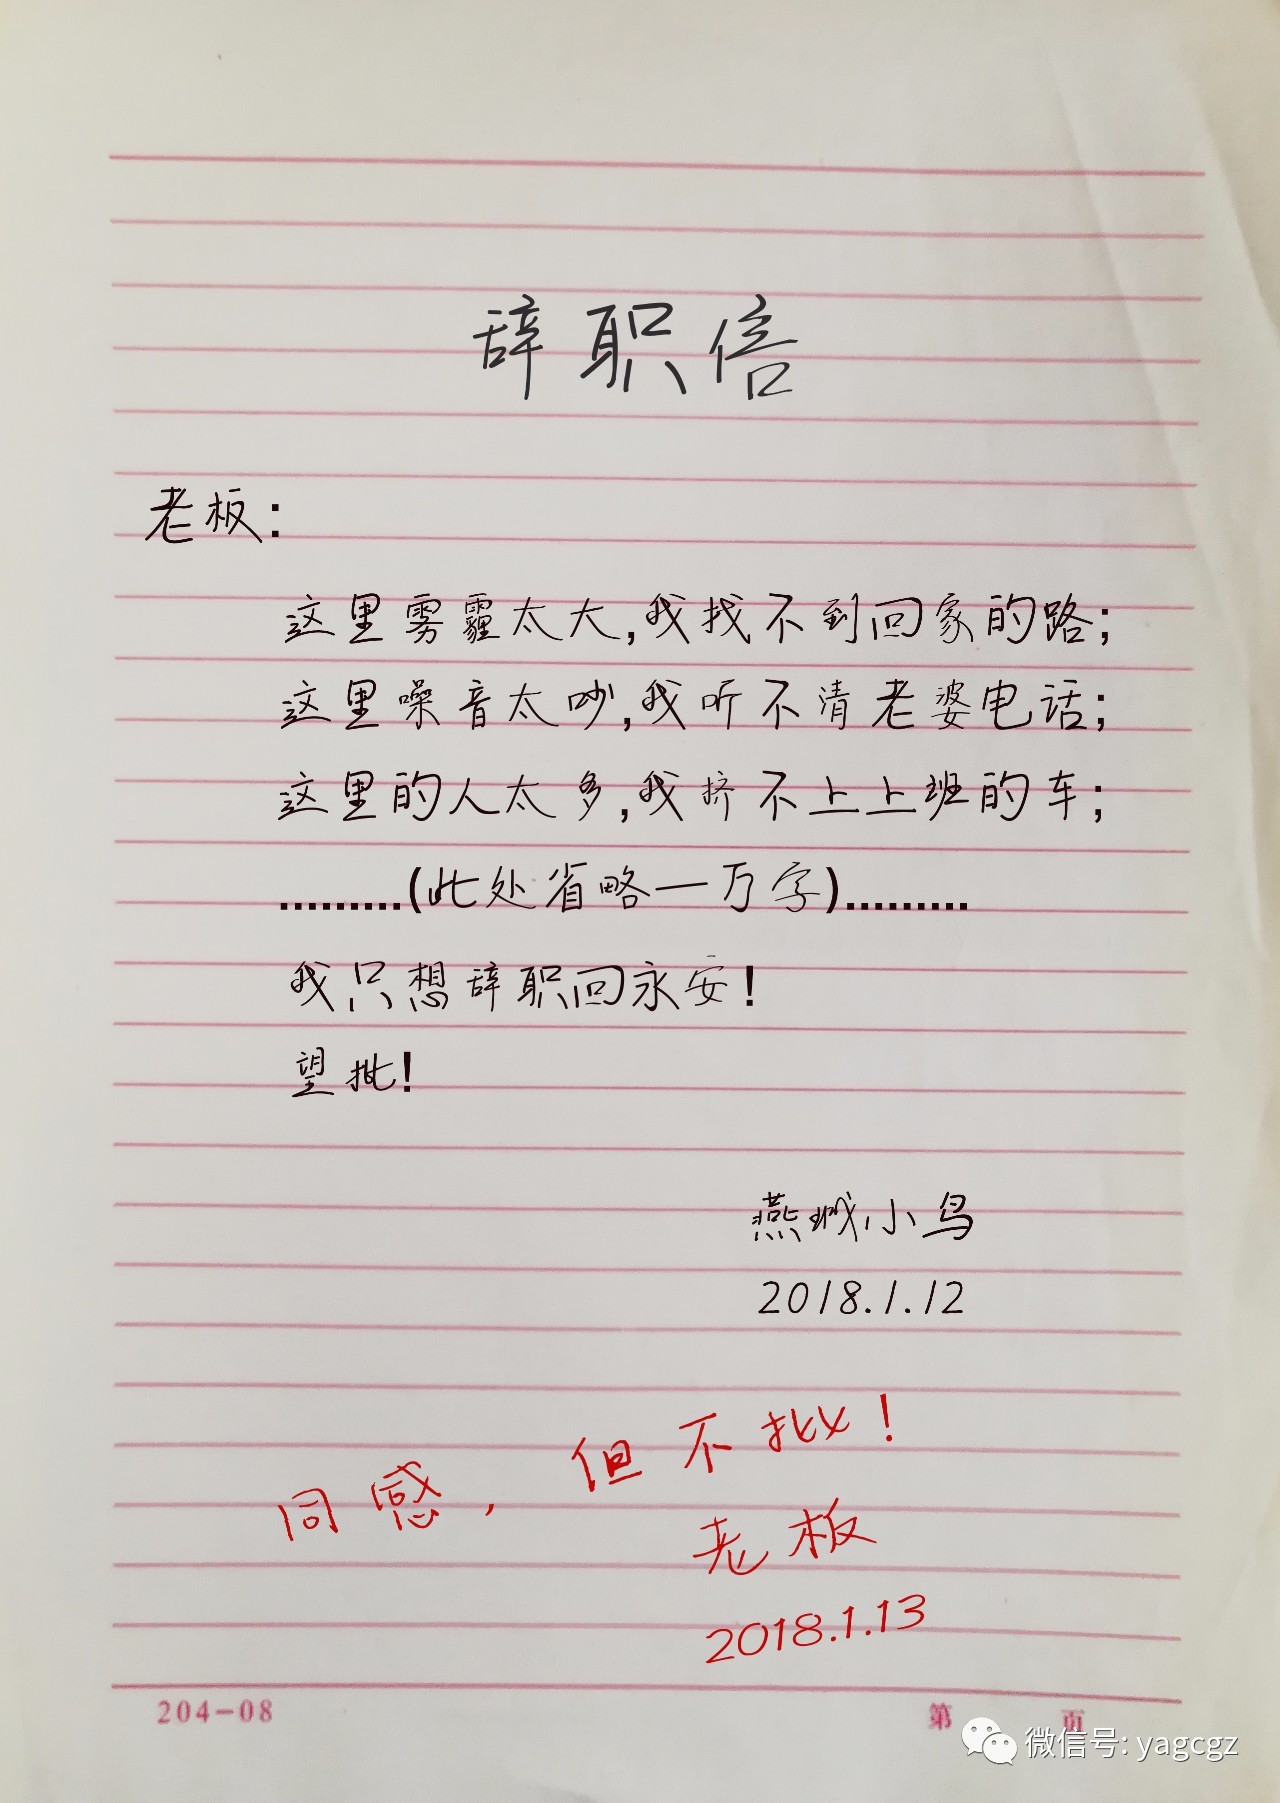 辞职信
老板:
这里雾霾太大,我找不到回家的路;
这里噪音太吵,我听不清老婆电话;
这里的人太多,我挤不上上班的车;
………(此处省略一万字)………
我只想辞职回永安!
望批!
燕城小鸟
2018.1.12
同感,但不批!
老板
2018.1.13
204-08 第 页
微信号: yagcgz